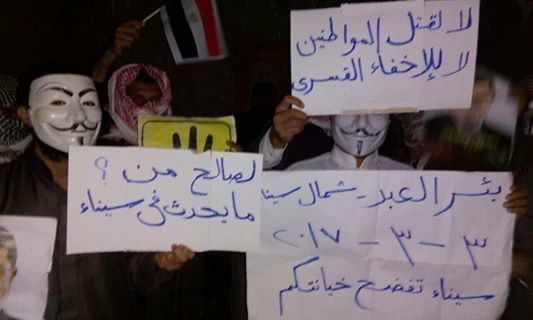 لا لقتل المواطنين
لا للإخفاء القسرى
لصالح من ؟
ما يحدث فى سيناء
بئر العبد - شمال سينا
٣ - ٣ - ٢٠١٧
سيناء تفضح خيانتكم